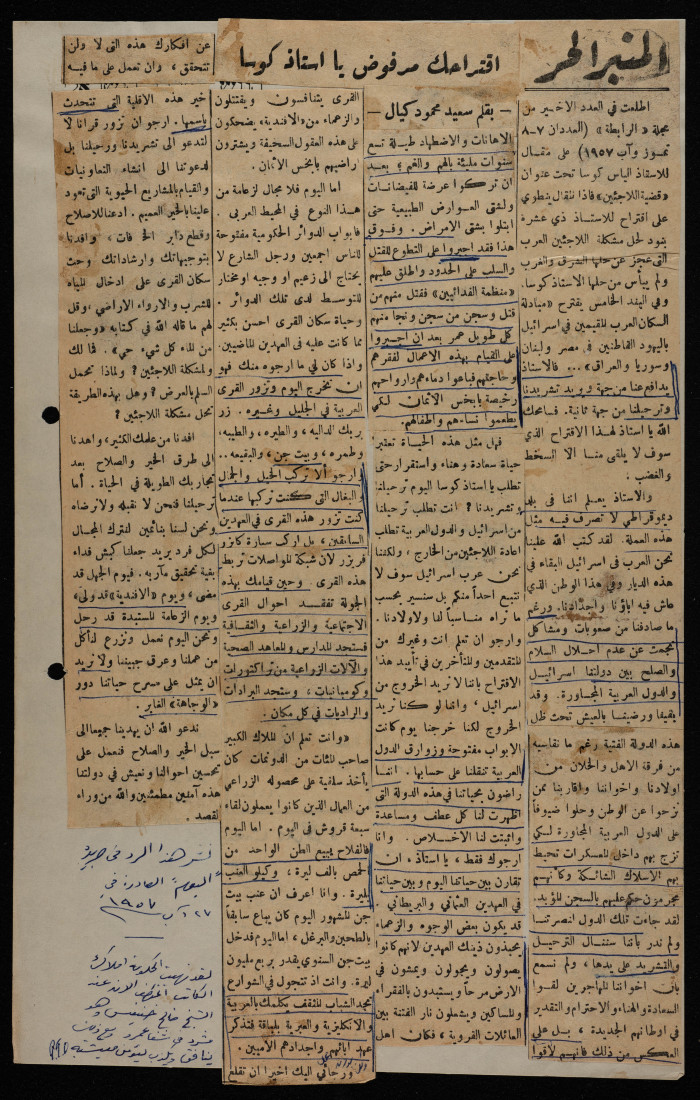 المنبر الحر
اقتراحك مرفوض يا استاذ كوسا
بقلم سعيد محمود كيال
اطلعت في العدد الاخير من
مجلة «الرابطة» (العددان ٧-٨
تموز وآب ١٩٥٧) على مقال
للاستاذ الياس كوسا تحت عنوان
«قضية اللاجئين» فاذا بالمقال ينطوي
على اقتراح للاستاذ ذي عشرة
بنود لحل مشكلة اللاجئين العرب
التي عجز عن حلها الشرق والغرب
ولم ييأس من حلها الاستاذ كوسا.
وفي البند الخامس يقترح «مبادلة
السكان العرب المقيمين في اسرائيل
باليهود القاطنين في مصر ولبنان
وسوريا والعراق»... فالاستاذ
يدافع عنا من جهة ويريد تشريدنا
وترحيلنا من جهة ثانية. فسامحك
الله يا استاذ لهذا الاقتراح الذي
سوف لا يلقى منا الا السخط
والغضب.
والاستاذ يعلم اننا في بلد
ديموقراطي لا تصرف فيه مثل
هذه العملة. لقد كتب الله علينا
نحن العرب في اسرائيل البقاء في
هذه الديار وفي هذا الوطن الذي
عاش فيه اباؤنا واجدادنا. ورغم
ما صادفنا من صعوبات ومشاكل
نجمت عن عدم احلال السلام
والصلح بين دولتنا اسرائيل
والدول العربية المجاورة. وقد
بقينا ورضينا بالعيش تحت ظل
هذه الدولة الفتية رغم ما نقاسيه
من فرقة الاهل والخلان من
اولادنا واخواننا واقاربنا ممن
نزحوا عن الوطن وحلوا ضيوفاً
على الدول العربية المجاورة لكي
تزج بهم داخل المعسكرات تحيط
بهم الاسلاك الشائكة وكأنهم
مجرمون حكم عليهم بالسجن المؤبد.
لقد جاءت تلك الدول لنصرتنا
ولم ندر بأننا سننال الترحيل
والتشريد على يدها، ولم نسمع
بأن اخواننا المهاجرين لقوا
السعادة والهناء والاحترام والتقدير
في اوطانهم الجديدة، بل على
العكس من ذلك فانهم لاقوا
الاهانات والاضطهاد طيلة تسع
سنوات مليئة بالهم والغم، بعد
ان تركوا عرضة للفيضانات
ولشتى العوارض الطبيعية حتى
ابتلوا بشتى الامراض. وفوق
هذا فقد اجبروا على التطوع للقتل
والسلب على الحدود واطلق عليهم
«منظمة الفدائيين» فقتل منهم من
قتل وسجن من سجن ونجا منهم
كل طويل عمر بعد ان اجبروا
على القيام بهذه الاعمال لفقرهم
وحاجتهم فباعوا دماءهم وارواحهم
رخيصة بابخس الاثمان لكي
يطعموا نساءهم واطفالهم.
فهل مثل هذه الحياة تعتبر
حياة سعادة وهناء واستقرار حتى
تطلب يا استاذ كوسا اليوم ترحيلنا
وتشريدنا؟ انت تطلب ترحيلنا
من اسرائيل والدول العربية تطلب
اعادة اللاجئين من الخارج، ولكننا
نحن عرب اسرائيل سوف لا
نتبع احداً منكم بل سنسير بحسب
ما نراه مناسباً لنا ولاولادنا.
وارجو ان تعلم انت وغيرك من
المتقدمين والمتأخرين في تأييد هذا
الاقتراح باننا لا نريد الخروج من
اسرائيل، واننا لو كنا نريد
الخروج لكنا خرجنا يوم كانت
الابواب مفتوحة وزوارق الدول
العربية تنقلنا على حسابها. اننا
راضون بحياتنا في هذه الدولة التي
اظهرت لنا كل عطف ومساعدة
واثبتت لنا الاخلاص. وانا
ارجوك فقط، يا استاذ، ان
تقارن بين حياتنا اليوم وبين حياتنا
في العهدين العثماني والبريطاني.
قد يكون بعض الوجوه والزعماء
يحبذون ذينك العهدين لانهم كانوا
يصولون ويجولون ويمشون في
الارض مرحاً ويستبدون بالفقراء
والمساكين ويشعلون نار الفتنة بين
العائلات القروية، فكان اهل
القرى يتنافسون ويقتتلون
والزعماء من «الافندية» يضحكون
على هذه العقول السخيفة ويشترون
اراضيهم بابخس الاثمان.
اما اليوم فلا مجال لزعامة من
هذا النوع في المحيط العربي.
فابواب الدوائر الحكومية مفتوحة
للناس اجمعين ورجل الشارع لا
يحتاج الى زعيم او وجيه او مختار
للتوسط لدى تلك الدوائر.
وحياة سكان القرى احسن بكثير
مما كانت عليه في العهدين الماضيين.
واذا كان لي ما ارجوه منك فهو
ان تخرج اليوم وتزور القرى
العربية في الجليل وغيره. زر
بربك الدالية، والطيره، والطيبه،
وطمره، وبيت جن، والبقيعه..
وارجو ألا تركب الخيل والجمال
والبغال التي كنت تركبها عندما
كنت تزور هذه القرى في العهدين
السابقين، بل اركب سيارة كايزر
فريزر لان شبكة المواصلات تربط
هذه القرى. وحين قيامك بهذه
الجولة تفقد احوال القرى
الاجتماعية والزراعية والثقافية
فستجد المدارس والمعاهد الصحية
والآلات الزراعية من تراكتورات
وكومباينات، وستجد البرادات
والراديات في كل مكان.
«وانت تعلم ان الملاك الكبير
صاحب المئات من الدونمات كان
يأخذ سلفية على محصوله الزراعي
من العمال الذين كانوا يعملون لقاء
سبعة قروش في اليوم. اما اليوم
فالفلاح يبيع الطن الواحد من
الحمص بالف ليرة، وكيلو العنب
بليرة. وانا اعرف ان عنب بيت
جن المشهور اليوم كان يباع سابقاً
بالطحين والبرغل، اما اليوم فدخل
بيت جن السنوي يقدر بربع مليون
ليرة. وانت اذ تتجول في الشوارع
تجد الشباب المثقف يكلمك بالعربية
والانكليزية والعبرية بلباقة فتذكر
عهد ابائهم واجدادهم الاميين.
ورجائي اليك اخيرا ان تقلع
عن افكارك هذه التي لا ولن
تتحقق، وان تعمل على ما فيه
خير هذه الاقلية التي تتحدث
باسمها. ارجو ان تزور قرانا لا
لتدعو الى تشريدنا ورحيلنا بل
لدعوتنا الى انشاء التعاونيات
والقيام بالمشاريع الحيوية التي تعود
علينا بالخير العميم. ادعنا للاصلاح
وقطع دابر الخلافات، وافدنا
بتوجيهاتك وارشاداتك وحث
سكان القرى على ادخال المياه
للشرب والارواء الاراضي، وقل
لهم ما قاله الله في كتابه «وجعلنا
من الماء كل شيء حي». فما لك
ولمشكلة اللاجئين؟ ولماذا تحمل
السلم بالعرض؟ وهل بهذه الطريقة
تحل مشكلة اللاجئين؟
افدنا من علمك الكثير، واهدنا
الى طرق الخير والصلاح بعد
تجاربك الطويلة في الحياة. أما
ترحيلنا فنحن لا نقبله ولا نرضاه
ونحن لسنا بنائمين لنترك المجال
لكل فرد يريد جعلنا كبش فداء
بغية تحقيق مآربه. فيوم الجهل قد
مضى، ويوم «الافندية» قد ولى،
ويوم الزعامة المستبدة قد رحل
ونحن اليوم نعمل ونزرع لنأكل
من عملنا وعرق جبيننا ولا نريد
ان يمثل على مسرح حياتنا دور
«الوجاهة» الغابر.
ندعو الله ان يهدينا جميعا الى
سبل الخير والصلاح فنعمل على
تحسين احوالنا ونعيش في دولتنا
هذه آمنين مطمئنين والله من وراء
القصد.
نشر هذا الرد في جريدة
"اليوم" الصادرة في
٢٧ آب ١٩٥٧
لقد نهبت الحكومة املاك